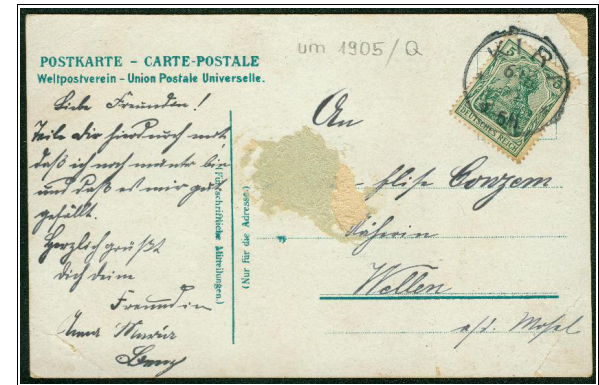 POSTKARTE – CARTE-POSTALE
Weltpostverein – Union Postale Universelle.
um 1905/Q
Liebe Freundin!
Teile dir hierdurch mit,
daß ich noch munter bin
und daß es mir gut
gefällt.
Herzlich grüßt
dich deine
Freundin
Anna
(Für schriftliche Mitteilungen.)
(Nur für die Adresse.)
5
DEUTSCHES REICH
An
Elise Conzem
Näherin
Wellen
a/d. Mosel